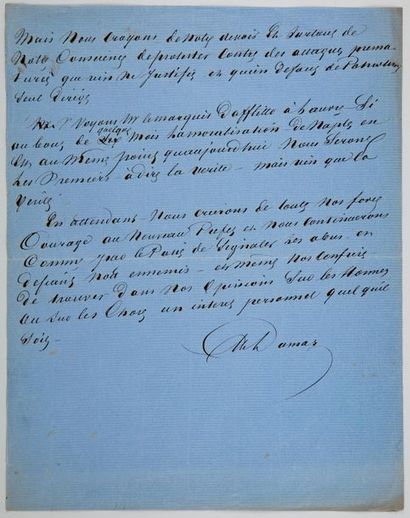 Mais nous croyons de notre devoir et surtout de
notre conscience de protester contre des attaques prema-
turées que rien ne justifie et qu'un defaut de
seul dirige
Voyons M le marquis d'afflitto à l'œuvre Si
au bout de quelques mois l'administration de Naples en
est au meme point qu'aujourdhui nous serons
les Premiers a dire la verité – mais rien que la
verité
En attendant – nous crierons de toutes nos forces
Courage au nouveau Prefet et nous continuerons
comme par le Passé de signaler les abus – en
defiant nos ennemis – et meme nos confreres
de trouver dans nos opinions sur les hommes
ou sur les choses un interet personnel quel qu'il
soit –
Alex Dumas